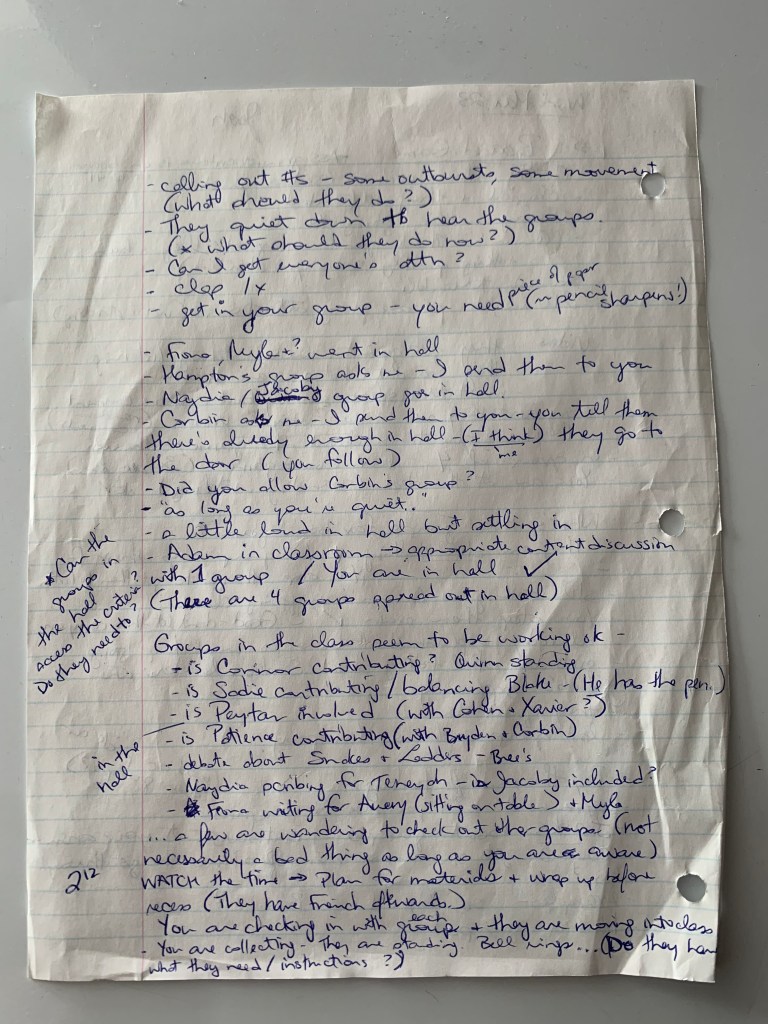 - calling out #s - some outbursts, some movement
(what should they do?)
- They quiet down to hear the groups.
(* what should they do now?)
- Can I get everyone's attn?
- clap 1x
- get in your group - you need piece of paper (no pencil sharpens!)
- Fiona, Myla +? went in hall
- Hampton's group asks me - I send them to you
- Naydia / Jacoby group goes in hall.
- Corbin asks me - I send them to you - you tell them
there's already enough in hall - (I think) they go to
me
the door (you follow)
- Did you allow Corbin's group?
- "as long as you're quiet.."
- a little loud in hall but settling in
- Adam in classroom → appropriate content discussion
with 1 group / You are in hall ✓
(There are 4 groups spread out in hall)
* Can the
groups in
the hall
access the criteria?
Do they need to?
Groups in the class seem to be working ok -
- is Connor contributing? Quinn standing
- is Sadie contributing / balancing Blake - (He has the pen.)
- is Peytan involved (with Cohen + Xavier?)
- is Patience contributing (with Brayden + Corbin)
in the
hall
- debate about Snakes + Ladders - Bree's
- Naydia scribing for Teneyah - is Jacoby included?
- Fiona writing for Avery (sitting on table) + Myla
... a few are wandering to check out other groups (not
necessarily a bad thing as long as you are aware)
2¹²
WATCH the time → Plan for materials + wrap up before
recess (They have French afterwards.)
You are checking in with each group + they are moving into class
- You are collecting - They are standing. Bell rings... (Do they have
what they need / instructions?)